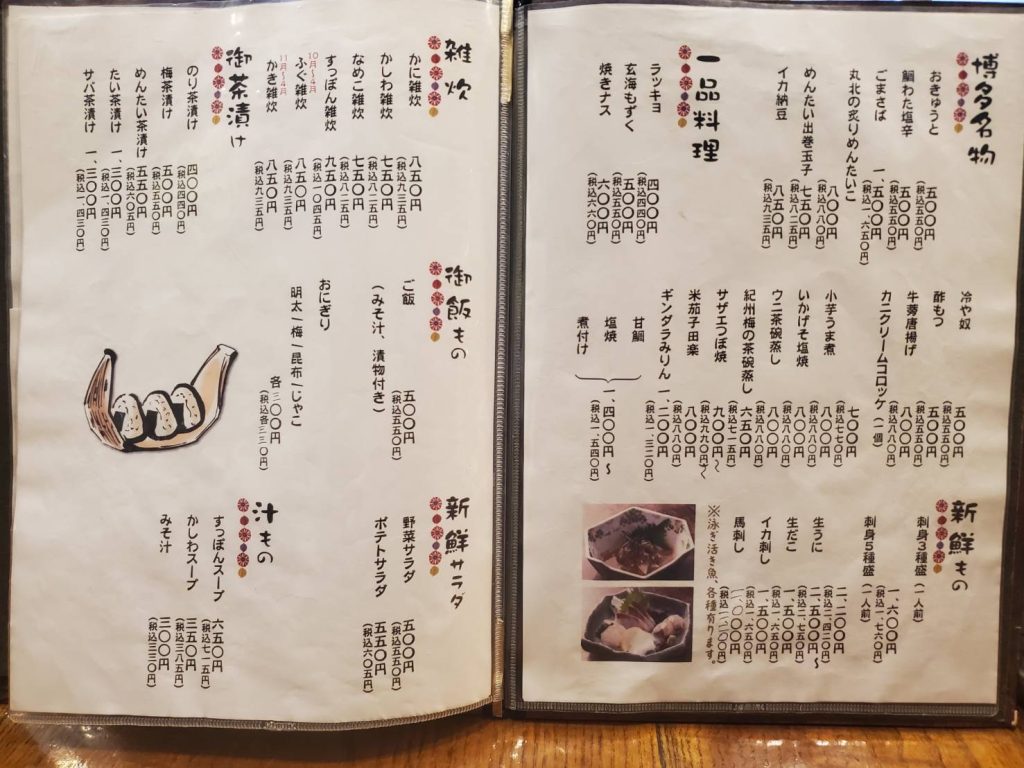 博多名物
おきゅうと 五〇〇円
(税込五五〇円)
鯛わた塩辛 五〇〇円
(税込五五〇円)
ごまさば 一、五〇〇円
(税込一、六五〇円)
丸北の炙りめんたいこ 八〇〇円
(税込八八〇円)
めんたい出巻玉子 七五〇円
(税込八二五円)
イカ納豆 八五〇円
(税込九三五円)
一品料理
ラッキョ 四〇〇円
(税込四四〇円)
玄海もずく 五〇〇円
(税込五五〇円)
焼きナス 六〇〇円
(税込六六〇円)
冷や奴 五〇〇円
(税込五五〇円)
酢もつ 五〇〇円
(税込五五〇円)
牛蒡唐揚げ 八〇〇円
(税込八八〇円)
カニクリームコロッケ(一個) 七〇〇円
(税込七七〇円)
小芋うま煮 八〇〇円
(税込八八〇円)
いかげそ塩焼 八〇〇円
(税込八八〇円)
ウニ茶碗蒸し 八〇〇円
(税込八八〇円)
紀州梅の茶碗蒸し 六五〇円
(税込七一五円)
サザエつぼ焼 九〇〇円〜
(税込九九〇円〜)
米茄子田楽 八〇〇円
(税込八八〇円)
ギンダラみりん 一、二〇〇円
(税込一、三二〇円)
甘鯛
塩焼
煮付け
一、四〇〇円〜
(税込一、五四〇円)
新鮮もの
刺身3種盛(一人前) 一、六〇〇円
(税込一、七六〇円)
刺身5種盛(一人前) 二、二〇〇円
(税込二、四二〇円)
生うに 二、五〇〇円〜
(税込二、七五〇円)
生だこ 一、五〇〇円
(税込一、六五〇円)
イカ刺し 一、五〇〇円
(税込一、六五〇円)
馬刺し 二、〇〇〇円
(税込二、二〇〇円)
※泳ぎ活き魚、各種有ります。
雑炊
かに雑炊 八五〇円
(税込九三五円)
かしわ雑炊 七五〇円
(税込八二五円)
なめこ雑炊 七五〇円
(税込八二五円)
すっぽん雑炊 九五〇円
(税込一、〇四五円)
10月〜4月
ふぐ雑炊 八五〇円
(税込九三五円)
11月〜4月
かき雑炊 八五〇円
(税込九三五円)
御茶漬け
のり茶漬け 四〇〇円
(税込四四〇円)
梅茶漬け 五〇〇円
(税込五五〇円)
めんたい茶漬け 五五〇円
(税込六〇五円)
たい茶漬け 一、三〇〇円
(税込一、四三〇円)
サバ茶漬け 一、三〇〇円
(税込一、四三〇円)
御飯もの
ご飯 五〇〇円
(みそ汁、漬物付き) (税込五五〇円)
おにぎり
明太|梅|昆布|じゃこ
各三〇〇円
(税込各三三〇円)
新鮮サラダ
野菜サラダ 五〇〇円
(税込五五〇円)
ポテトサラダ 五五〇円
(税込六〇五円)
汁もの
すっぽんスープ 六五〇円
(税込七一五円)
かしわスープ 三五〇円
(税込三八五円)
みそ汁 三〇〇円
(税込三三〇円)